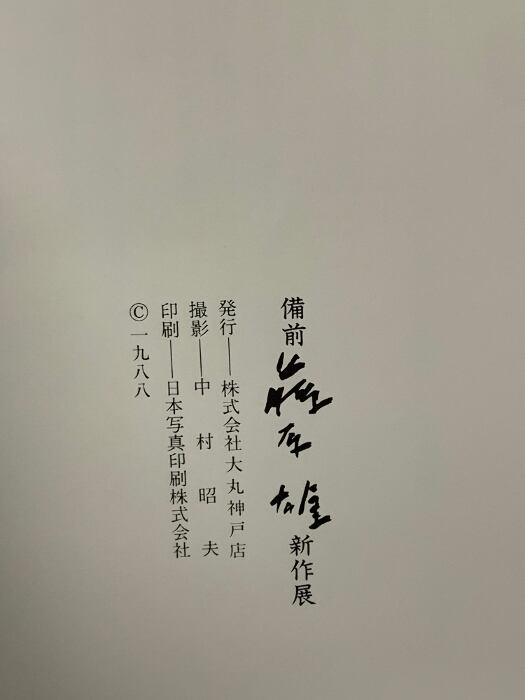 備前 藤原 雄 新作展
発行──株式会社大丸神戸店
撮影──中村昭夫
印刷──日本写真印刷株式会社
©一九八八